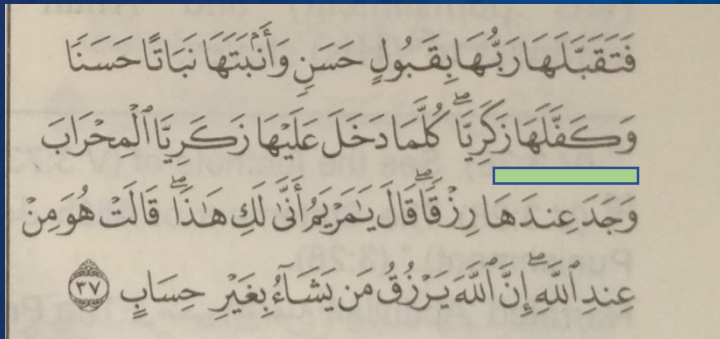 فَتَقَبَّلَهَا رَبُّهَا بِقَبُولٍ حَسَنٍ وَأَنۢبَتَهَا نَبَاتًا حَسَنًا
وَكَفَّلَهَا زَكَرِيَّاۖ كُلَّمَا دَخَلَ عَلَيْهَا زَكَرِيَّا ٱلْمِحْرَابَ
وَجَدَ عِندَهَا رِزْقًاۖ قَالَ يَٰمَرْيَمُ أَنَّىٰ لَكِ هَٰذَاۖ قَالَتْ هُوَ مِنْ
عِندِ ٱللَّهِۖ إِنَّ ٱللَّهَ يَرْزُقُ مَن يَشَآءُ بِغَيْرِ حِسَابٍ ٣٧